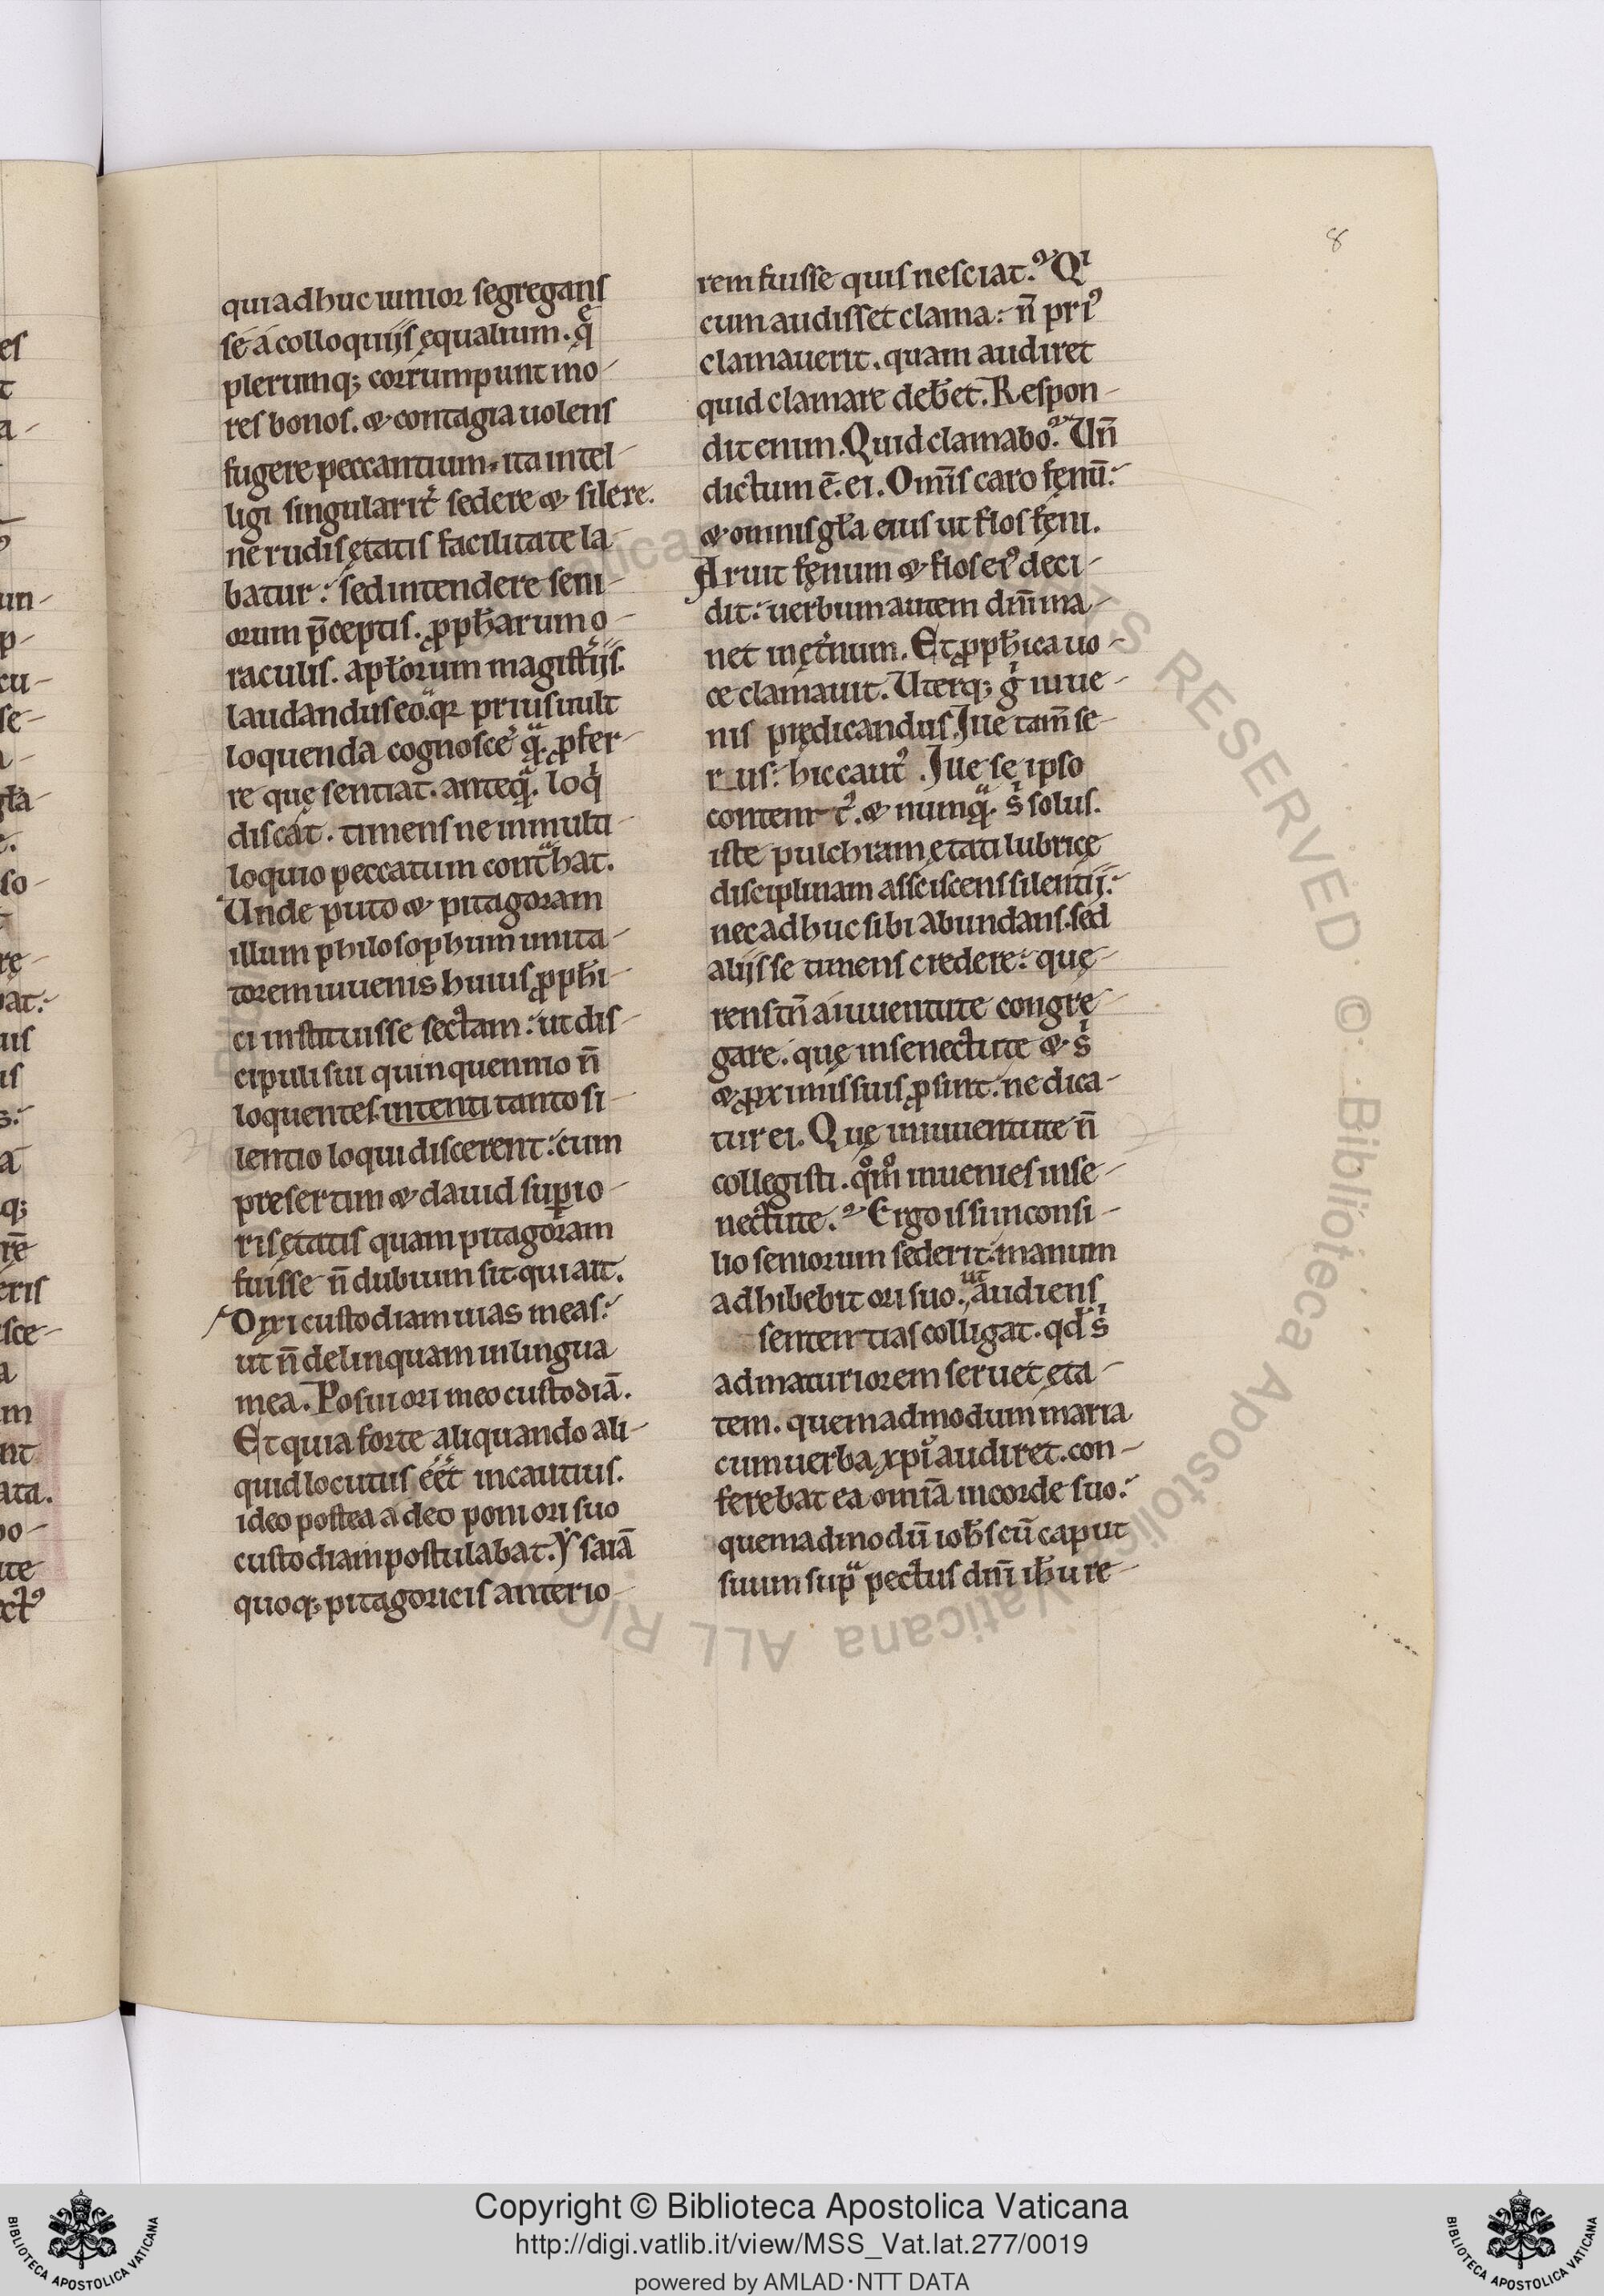 8
qui adhuc iunior segregans
se a colloquiis ęqualium. q̄
plerumq; corrumpunt mo-
res bonos. & contagia uolens
fugere peccantium. ita intel-
ligi singularit̛ sedere & silere.
ne rudis ętatis facilitate la-
batur: sed intendere seni-
orum p̄ceptis. ꝓph̄arum o-
raculis. apl̄orum magist̛iis.
laudandus eoqꝛ prius uult
loquenda cognosce̛ qͣ. ꝓfer-
re quę sentiat. anteqͣ. loqⁱ
discat. timens ne in multi-
loquio peccatum cont̾hat.
Unde puto & pitagoram
illum philosophum imita-
torem iuuenis huius ꝓph̄i-
ci instituisse sectam: ut dis-
cipuli sui quinquennio n̄
loquentes. intenti tanto si-
lentio loqui discerent: cum
presertim & dauid sup̱io-
ris ętatis quam pitagoram
fuisse n̄ dubium sit. qui ait.
Dixi custodiam uias meas:
ut n̄ delinquam in lingua
mea. Posui ori meo custodiā.
Et quia forte aliquando ali-
quid locutus eēt incautius.
ideo postea a deo poni ori suo
custodiam postulabat. Ysaiā
quoq; pitagoricis anterio-
rem fuisse quis nesciat? Qⁱ
cum audisset clama: n̄ priꝰ
clamauerit. quam audiret
quid clamare deb̄et. Respon-
dit enim. Quid clamabo? Un̄
dictum ē. ei. Omīs caro fęnū:
& omnis gl̄a eius ut flos fęni.
Aruit fęnum & flos eiꝰ deci-
dit: uerbum autem dn̄i ma-
net in ęt̛num. Et ꝓph̄ica uo-
ce clamauit. Uterq; gⁱ iuue-
nis prędicandus. Jlle tam̄ se-
rus: hic cautꝰ. Jlle se ipso
contemtꝰ. & numqͣ. sⁱ solus.
iste pulchram ętati lubricę
disciplinam assciscens silentii:
nec adhuc sibi abundans. sed
aliis se timens credere: quę-
rens tn̄ a iuuentute congre-
gare. quę in senectute & sⁱ
& ꝓximis suis ꝓsint. ne dica-
tur ei. Quę in iuuentute n̄
collegisti. qͦmͦ inuenies in se-
nectute? Ergo is si in consi-
lio seniorum sederit: manum
adhibebit ori suo. ut audiens
sententias colligat. qd̄ sⁱ
ad maturiorem seruet ęta-
tem. quemadmodum maria
cum uerba xp̄i audiret. con-
ferebat ea omīa in corde suo:
quemadmodū ioh̄s cū caput
suum supͣ pectus dn̄i ih̄u re-
Copyright © Biblioteca Apostolica Vaticana
http://digi.vatlib.it/view/MSS_Vat.lat.277/0019
powered by AMLAD·NTT DATA